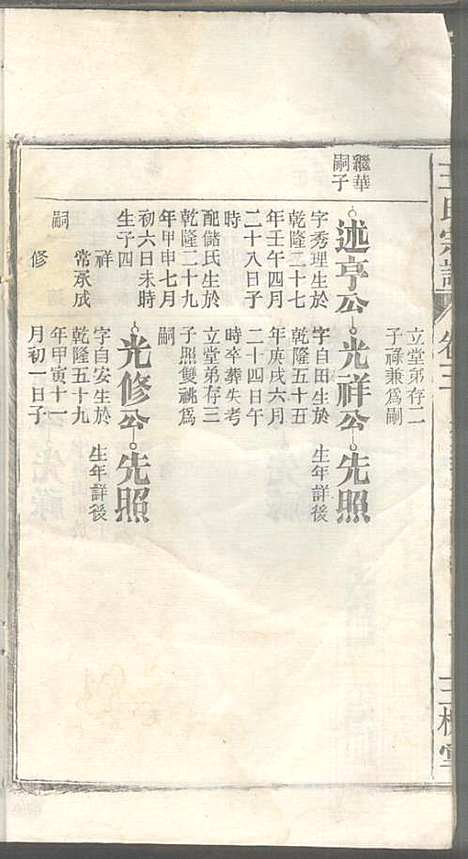 王氏宗譜
卷三
三槐堂
立堂弟存二
子祿兼為嗣
繼華
嗣子
述亭公
字秀理生於
乾隆二十七
年壬午四月
二十八日子
時
配儲氏生於
乾隆二十九
年甲申七月
初六日未時
生子四
祥
常承成
嗣
修
光祥公
字自田生於
乾隆五十五
年庚戌六月
二十四日午
時卒葬失考
立堂弟存三
子照雙祧為
嗣
先照
生年詳後
光修公
字自安生於
乾隆五十九
年甲寅十一
月初一日子
先照
生年詳後